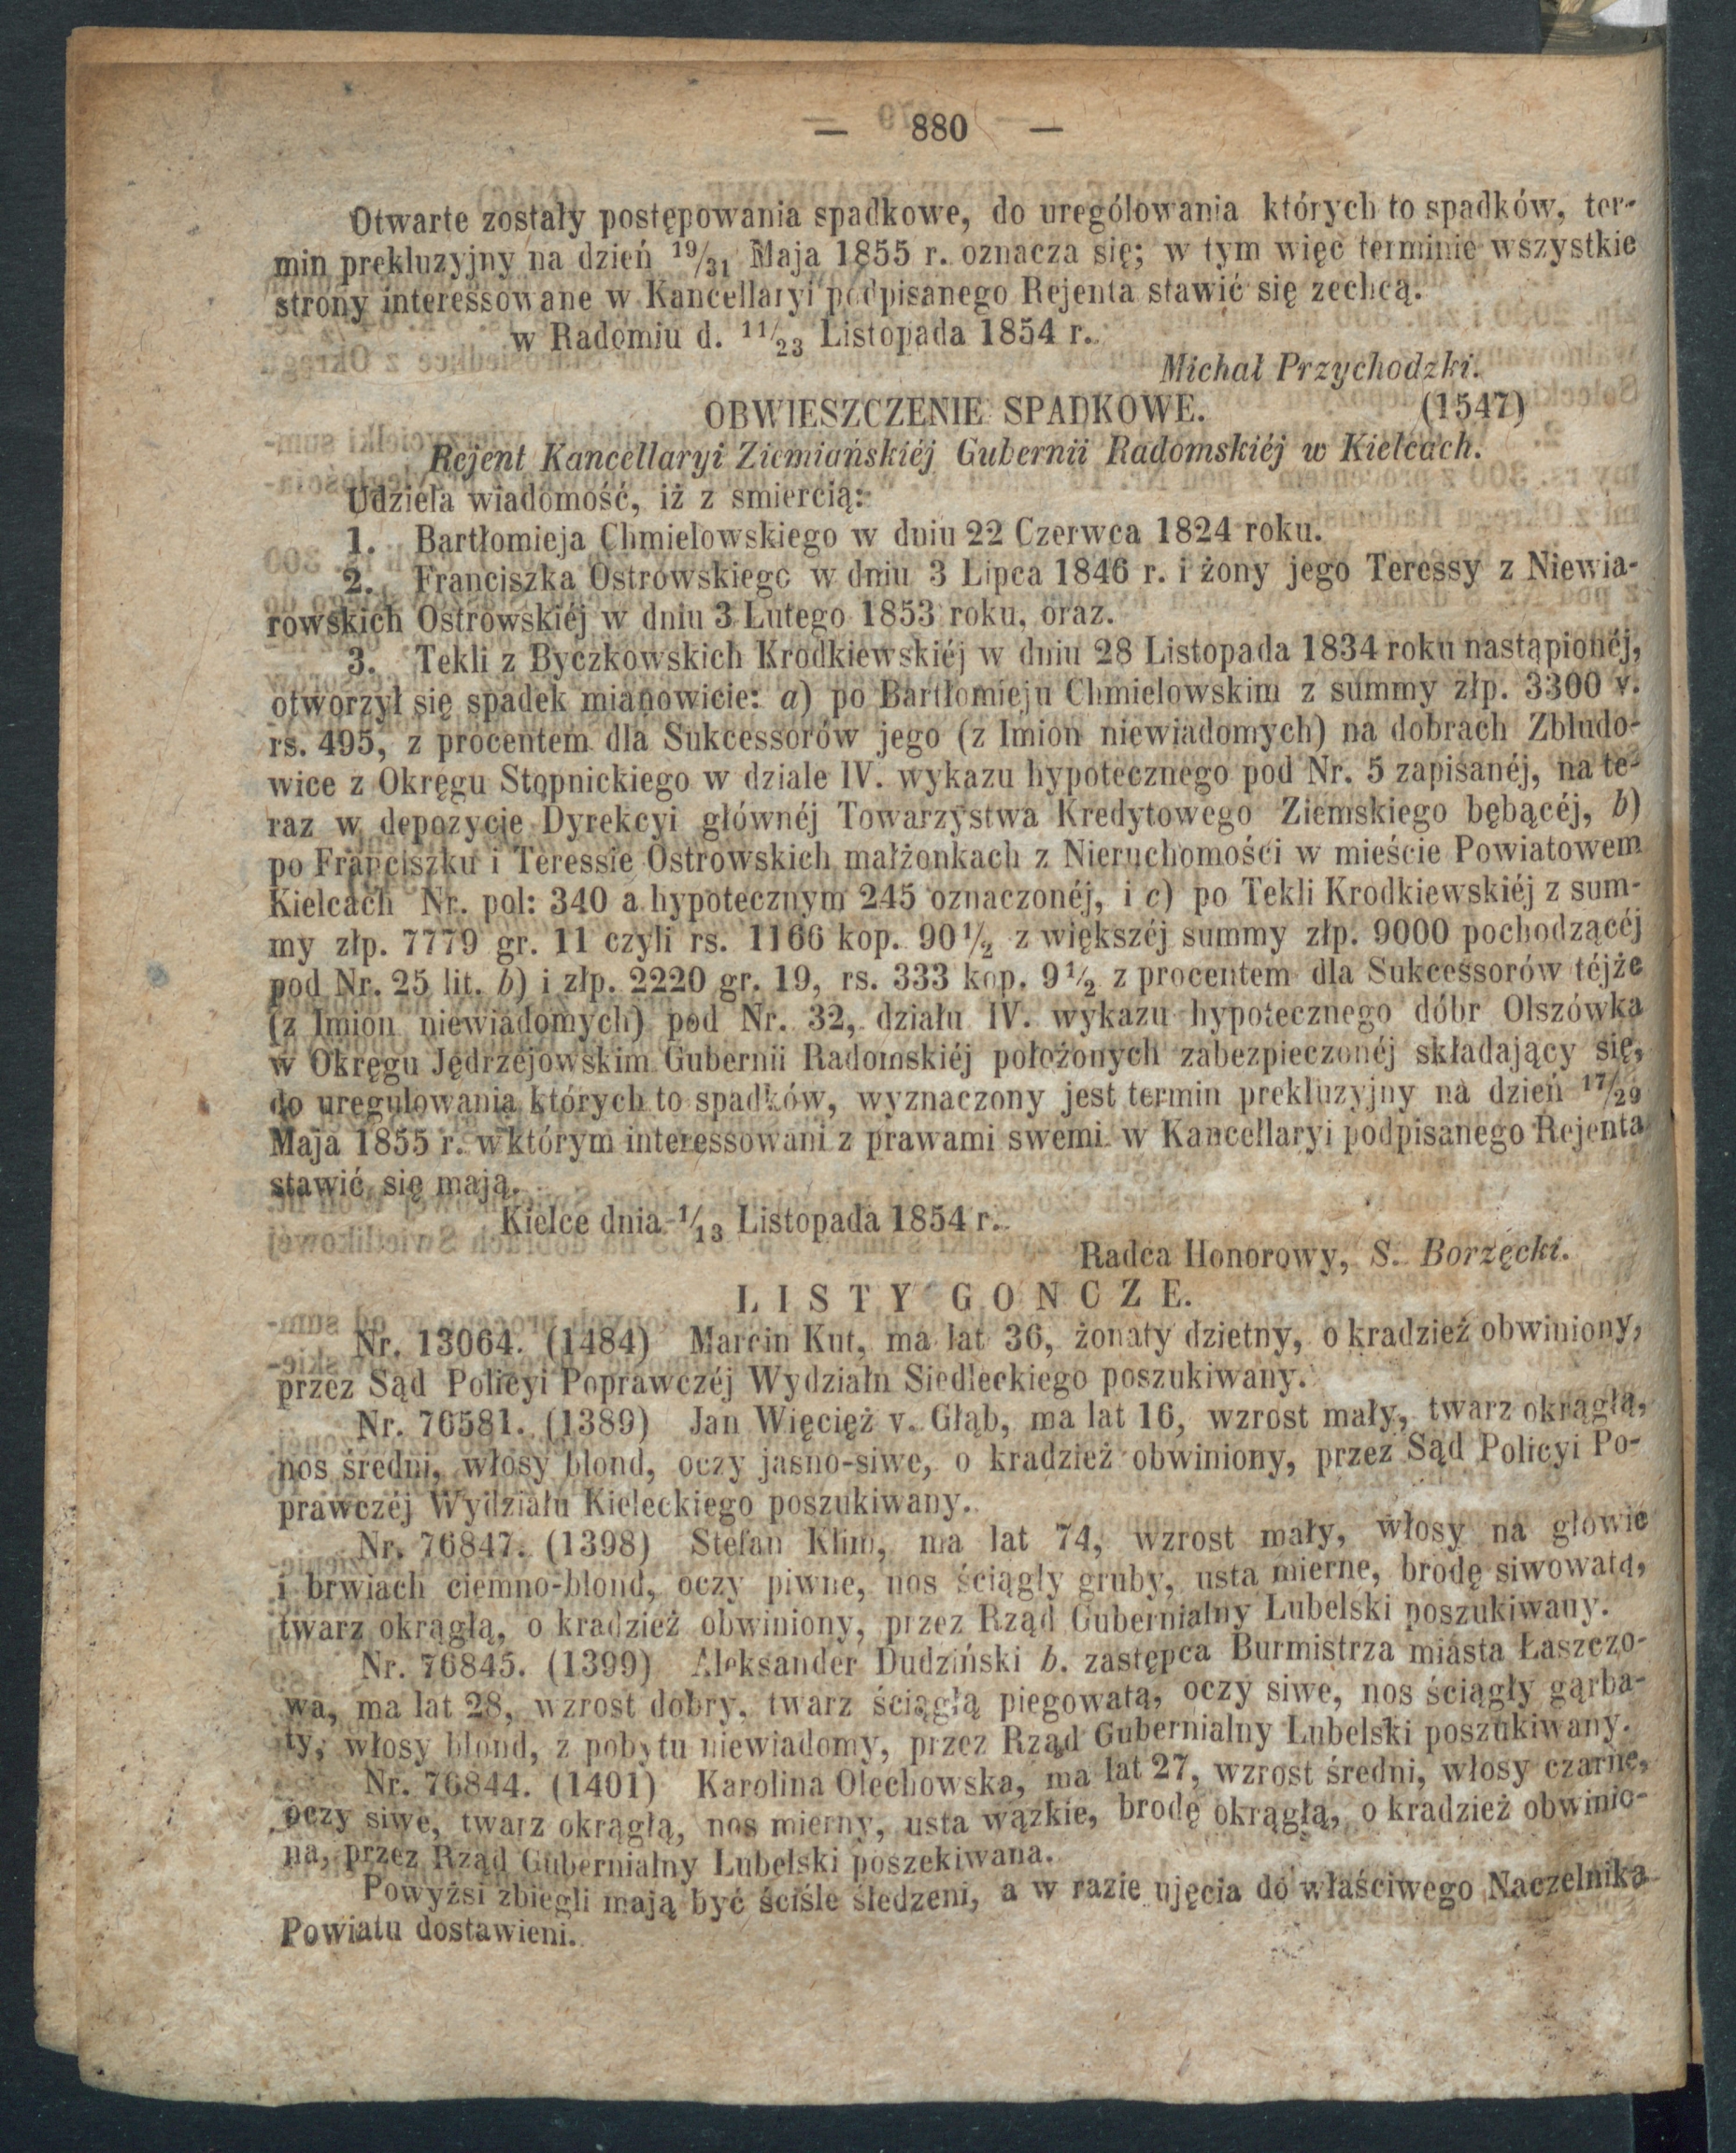 — 880 —
Otwarte zostały postępowania spadkowe, do urególowania których to spadków, ter-
min prekluzyjny na dzień 19/31 Maja 1855 r. oznacza się; w tym więc terminie wszystkie
strony interessowane w Kancellaryi podpisanego Rejenta stawić się zechcą.
w Radomiu d. 11/23 Listopada 1854 r.
Michał Przychodzki.
OBWIESZCZENIE SPADKOWE. (1547)
Rejent Kancellaryi Ziemiańskiéj Gubernii Radomskiéj w Kielcach.
Udziela wiadomość, iż z smiercią:
1. Bartłomieja Chmielowskiego w dniu 22 Czerwca 1824 roku.
2. Franciszka Ostrowskiego w dniu 3 Lipca 1846 r. i żony jego Teressy z Niewia-
rowskich Ostrowskiéj w dniu 3 Lutego 1853 roku, oraz.
3. Tekli z Byczkowskich Krodkiewskiéj w dniu 28 Listopada 1834 roku nastąpionéj,
otworzył się spadek mianowicie: a) po Bartłomieju Chmielowskim z summy złp. 3300 v.
rs. 495, z procentem dla Sukcessorów jego (z Imion niewiadomych) na dobrach Zbludo-
wice z Okręgu Stopnickiego w dziale IV. wykazu hypotecznego pod Nr. 5 zapisanéj, na te-
raz w depozycie Dyrekcyi głównéj Towarzystwa Kredytowego Ziemskiego bębącéj, b)
po Franciszku i Teressie Ostrowskich małżonkach z Nieruchomości w mieście Powiatowem
Kielcach Nr. pol: 340 a hypotecznym 245 oznaczonéj, i c) po Tekli Krodkiewskiéj z sum-
my złp. 7779 gr. 11 czyli rs. 1166 kop. 90 1/2 z większéj summy złp. 9000 pochodzącéj
pod Nr. 25 lit. b) i złp. 2220 gr. 19, rs. 333 kop. 9 1/2 z procentem dla Sukcessorów téjże
(z Imion niewiadomych) pod Nr. 32, działu IV. wykazu hypotecznego dóbr Olszówka
w Okręgu Jędrzejowskim Gubernii Radomskiéj położonych zabezpieczonéj składający się,
do uregulowania których to spadków, wyznaczony jest termin prekluzyjny na dzień 17/29
Maja 1855 r. w którym interessowani z prawami swemi w Kancellaryi podpisanego Rejenta
stawić się mają.
Kielce dnia 1/13 Listopada 1854 r.
Radca Honorowy, S. Borzęcki.
LISTY GONCZE.
Nr. 13064. (1484) Marcin Kut, ma lat 36, żonaty dzietny, o kradzież obwiniony,
przez Sąd Policyi Poprawczéj Wydziałn Siedleckiego poszukiwany.
Nr. 76581. (1389) Jan Więcięż v. Głąb, ma lat 16, wzrost mały, twarz okrągłą,
nos średni, włosy blond, oczy jasno-siwe, o kradzież obwiniony, przez Sąd Policyi Po-
prawczéj Wydziału Kieleckiego poszukiwany.
Nr. 76847. (1398) Stefan Klim, ma lat 74, wzrost mały, włosy na głowie
i brwiach ciemno-blond, oczy piwne, nos ściągły gruby, usta mierne, brodę siwowatą,
twarz okrągłą, o kradzież obwiniony, przez Rząd Gubernialny Lubelski poszukiwany.
Nr. 76845. (1399) Aleksander Dudziński b. zastępca Burmistrza miasta Łaszczo-
wa, ma lat 28, wzrost dobry, twarz ściągłą piegowatą, oczy siwe, nos ściągły gąrba-
ty, włosy blond, z pobytu niewiadomy, przez Rząd Gubernialny Lubelski poszukiwany.
Nr. 76844. (1401) Karolina Olechowska, ma lat 27, wzrost średni, włosy czarne,
oczy siwe, twarz okrągłą, nos mierny, usta wązkie, brodę okrągłą, o kradzież obwinio-
na, przez Rząd Gubernialny Lubelski poszekiwana.
Powyżsi zbiegli mają być ściśle śledzeni, a w razie ujęcia do właściwego Naczelnika
Powiatu dostawieni.